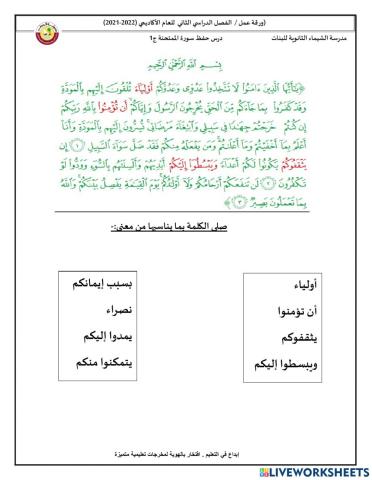 (ورقة عمل / الفصل الدراسي الثاني للعام الأكاديمي (2022-2021)
مدرسة الشيماء الثانوية للبنات
درس حفظ سورة الممتحنة ج1
بِسْمِ اللَّهِ الرَّحْمَٰنِ الرَّحِيمِ
﴿يَٰٓأَيُّهَا ٱلَّذِينَ ءَامَنُوا۟ لَا تَتَّخِذُوا۟ عَدُوِّى وَعَدُوَّكُمْ أَوْلِيَآءَ تُلْقُونَ إِلَيْهِم بِٱلْمَوَدَّةِ
وَقَدْ كَفَرُوا۟ بِمَا جَآءَكُم مِّنَ ٱلْحَقِّ يُخْرِجُونَ ٱلرَّسُولَ وَإِيَّاكُمْ أَن تُؤْمِنُوا۟ بِٱللَّهِ رَبِّكُمْ
إِن كُنتُمْ خَرَجْتُمْ جِهَٰدًا فِى سَبِيلِى وَٱبْتِغَآءَ مَرْضَاتِى تُسِرُّونَ إِلَيْهِم بِٱلْمَوَدَّةِ وَأَنَا۠
أَعْلَمُ بِمَآ أَخْفَيْتُمْ وَمَآ أَعْلَنتُمْ وَمَن يَفْعَلْهُ مِنكُمْ فَقَدْ ضَلَّ سَوَآءَ ٱلسَّبِيلِ (١) إِن
يَثْقَفُوكُمْ يَكُونُوا۟ لَكُمْ أَعْدَآءً وَيَبْسُطُوٓا۟ إِلَيْكُمْ أَيْدِيَهُمْ وَأَلْسِنَتَهُم بِٱلسُّوٓءِ وَوَدُّوا۟ لَوْ
تَكْفُرُونَ (٢) لَن تَنفَعَكُمْ أَرْحَامُكُمْ وَلَآ أَوْلَٰدُكُمْ يَوْمَ ٱلْقِيَٰمَةِ يَفْصِلُ بَيْنَكُمْ وَٱللَّهُ
بِمَا تَعْمَلُونَ بَصِيرٌ (٣)﴾
صلي الكلمة بما يناسبها من معنى:-
أولياء
أن تؤمنوا
يثقفوكم
ويبسطوا إليكم
بسبب إيمانكم
نصراء
يمدوا إليكم
يتمكنوا منكم
إبداع في التعليم , افتخار بالهوية لمخرجات تعليمية متميزة
LIVEWORKSHEETS